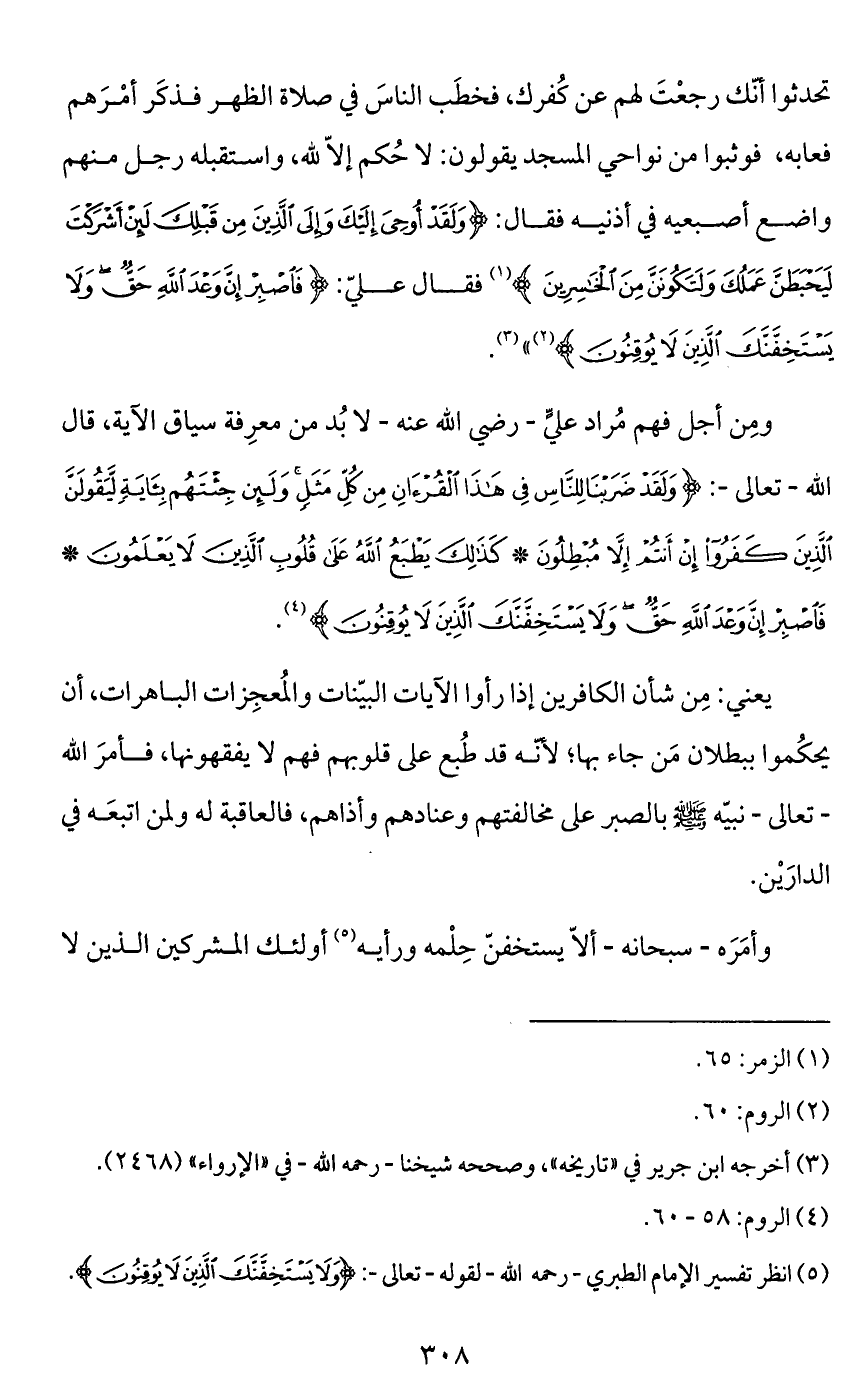 تحدثوا أنّك رجعْتَ لهم عن كُفرك، فخطَب الناسَ في صلاة الظهر فذكَر أمْرَهم
فعابه، فوثبوا من نواحي المسجد يقولون: لا حُكم إلاّ لله، واستقبله رجل منهم
واضع أصبعيه في أذنيه فقال: ﴿وَلَقَدْ أُوحِىَ إِلَيْكَ وَإِلَى ٱلَّذِينَ مِن قَبْلِكَ لَئِنْ أَشْرَكْتَ
لَيَحْبَطَنَّ عَمَلُكَ وَلَتَكُونَنَّ مِنَ ٱلْخَٰسِرِينَ﴾(١) فقال عليّ: ﴿فَٱصْبِرْ إِنَّ وَعْدَ ٱللَّهِ حَقٌّ ۖ وَلَا
يَسْتَخِفَّنَّكَ ٱلَّذِينَ لَا يُوقِنُونَ﴾(٢)»(٣).
ومِن أجل فهم مُراد عليٍّ - رضي الله عنه - لا بُد من معرِفة سياق الآية، قال
الله - تعالى -: ﴿وَلَقَدْ ضَرَبْنَا لِلنَّاسِ فِى هَٰذَا ٱلْقُرْءَانِ مِن كُلِّ مَثَلٍ ۚ وَلَئِن جِئْتَهُم بِـَٔايَةٍ لَّيَقُولَنَّ
ٱلَّذِينَ كَفَرُوٓا۟ إِنْ أَنتُمْ إِلَّا مُبْطِلُونَ * كَذَٰلِكَ يَطْبَعُ ٱللَّهُ عَلَىٰ قُلُوبِ ٱلَّذِينَ لَا يَعْلَمُونَ *
فَٱصْبِرْ إِنَّ وَعْدَ ٱللَّهِ حَقٌّ ۖ وَلَا يَسْتَخِفَّنَّكَ ٱلَّذِينَ لَا يُوقِنُونَ﴾(٤).
يعني: مِن شأن الكافرين إذا رأوا الآيات البيّنات والمُعجِزات الباهرات، أن
يحكُموا ببطلان مَن جاء بها؛ لأنّه قد طُبع على قلوبهم فهم لا يفقهونها، فأمرَ الله
- تعالى - نبيّه ﷺ بالصبر على مخالفتهم وعنادهم وأذاهم، فالعاقبة له ولمن اتبعَه في
الدارَيْن.
وأمَرَه - سبحانه - ألاّ يستخفنّ حِلْمه ورأيه(٥) أولئك المشركين الذين لا
(١) الزمر: ٦٥.
(٢) الروم: ٦٠.
(٣) أخرجه ابن جرير في «تاريخه»، وصححه شيخنا - رحمه الله - في «الإرواء» (٢٤٦٨).
(٤) الروم: ٥٨ - ٦٠.
(٥) انظر تفسير الإمام الطبري - رحمه الله - لقوله - تعالى -: ﴿وَلَا يَسْتَخِفَّنَّكَ ٱلَّذِينَ لَا يُوقِنُونَ﴾.
٣٠٨